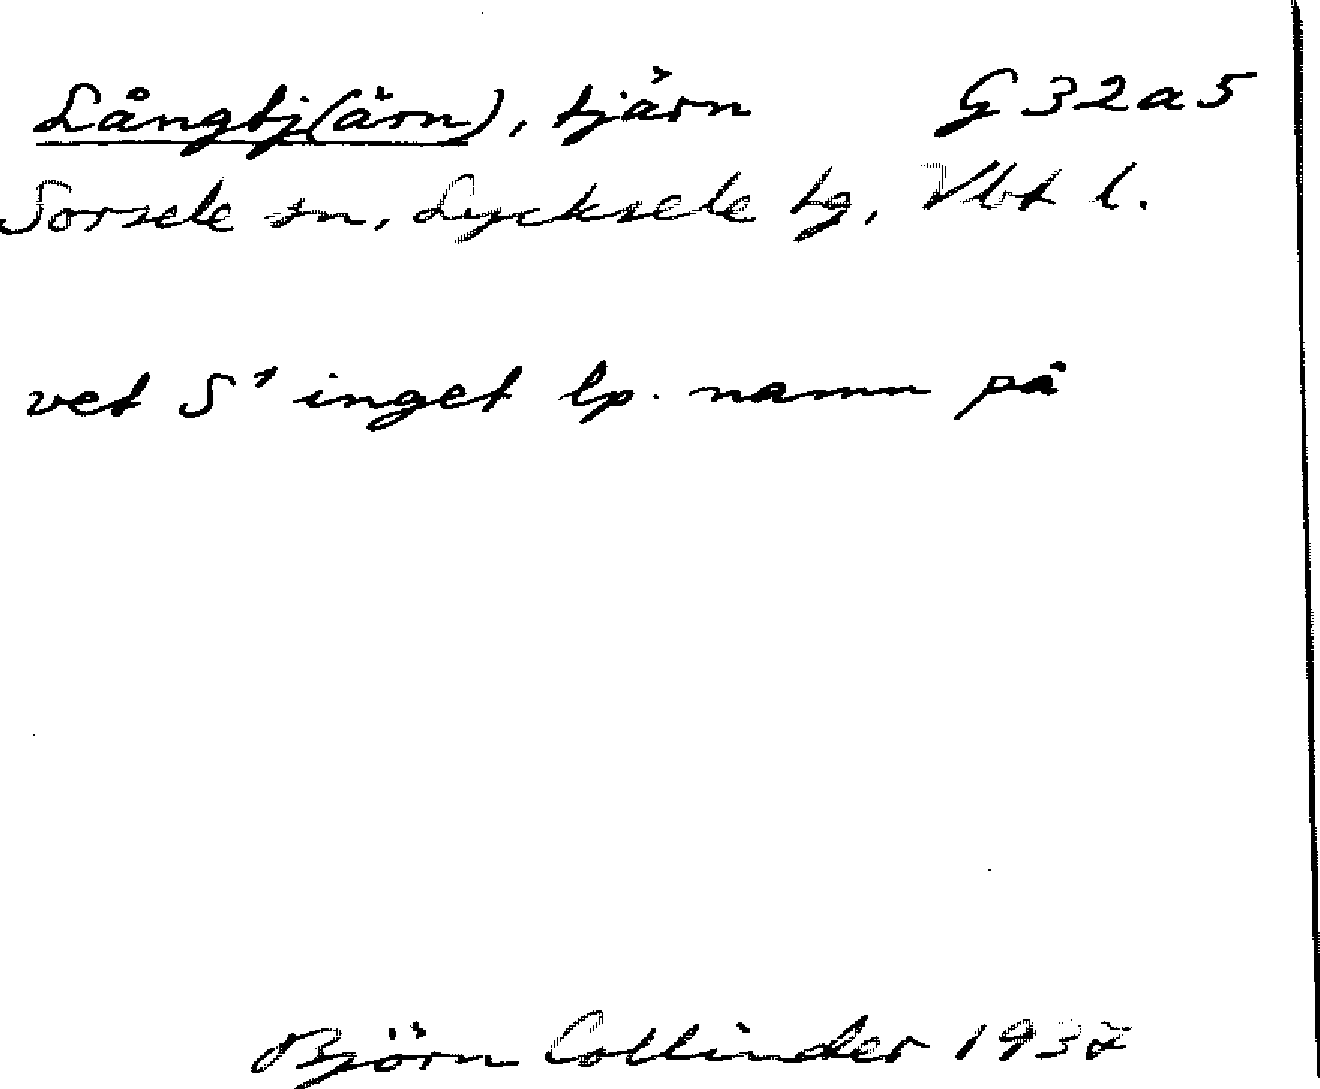 Långtj(ärn), tjärn G32a5
Sorsele sn, Lycksele tg, Vbt l.
vet S¹ inget lp. namn på
Björn Collinder 1937